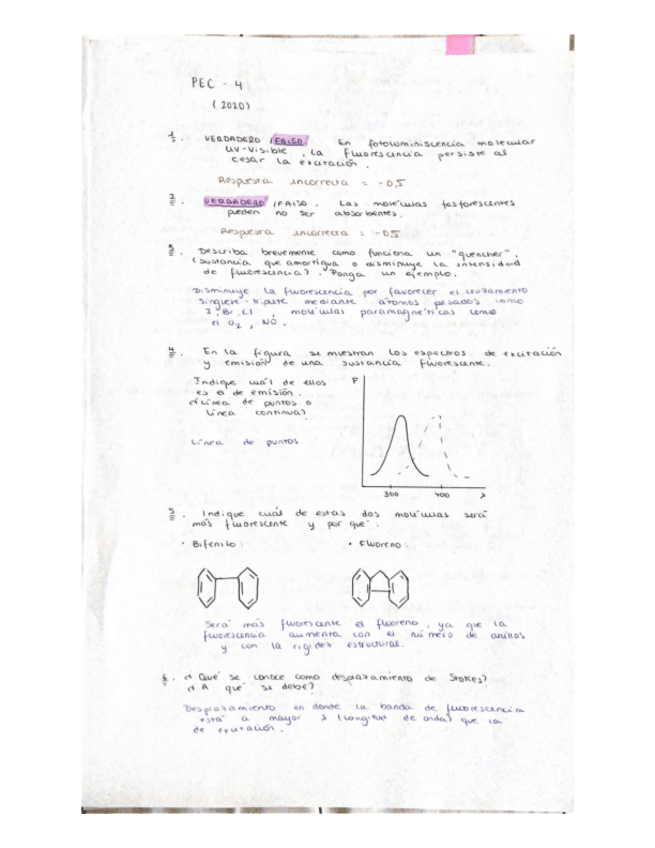 PEC - 4
(2020)
1. VERDADERO / FALSO. En fotoluminiscencia molecular
UV-Visible, la fluorescencia persiste al
cesar la excitación.
Respuesta incorrecta = -0,5
2. VERDADERO / FALSO. Las moléculas fosforescentes
pueden no ser absorbentes.
Respuesta incorrecta = -0,5
3. Describa brevemente como funciona un "quencher".
(sustancia que amortigua o disminuye la intensidad
de fluorescencia). Ponga un ejemplo.
Disminuye la fluorescencia por favorecer el cruzamiento
singlete-triplete mediante átomos pesados como
I, Br, Cl, moléculas paramagnéticas como
el O2, NO.
4. En la figura se muestran los espectros de excitación
y emisión de una sustancia fluorescente.
Indique cuál de ellos
es el de emisión.
¿Línea de puntos o
línea continua?
Línea de puntos
F
300 400 λ
5. Indique cuál de estas dos moléculas será
más fluorescente y por qué:
• Bifenilo:
• Fluoreno:
Será más fluorescente el fluoreno, ya que la
fluorescencia aumenta con el número de anillos
y con la rigidez estructural.
6. ¿Qué se conoce como desplazamiento de Stokes?
¿A qué se debe?
Desplazamiento en donde la banda de fluorescencia
está a mayor λ (longitud de onda) que la
de excitación.